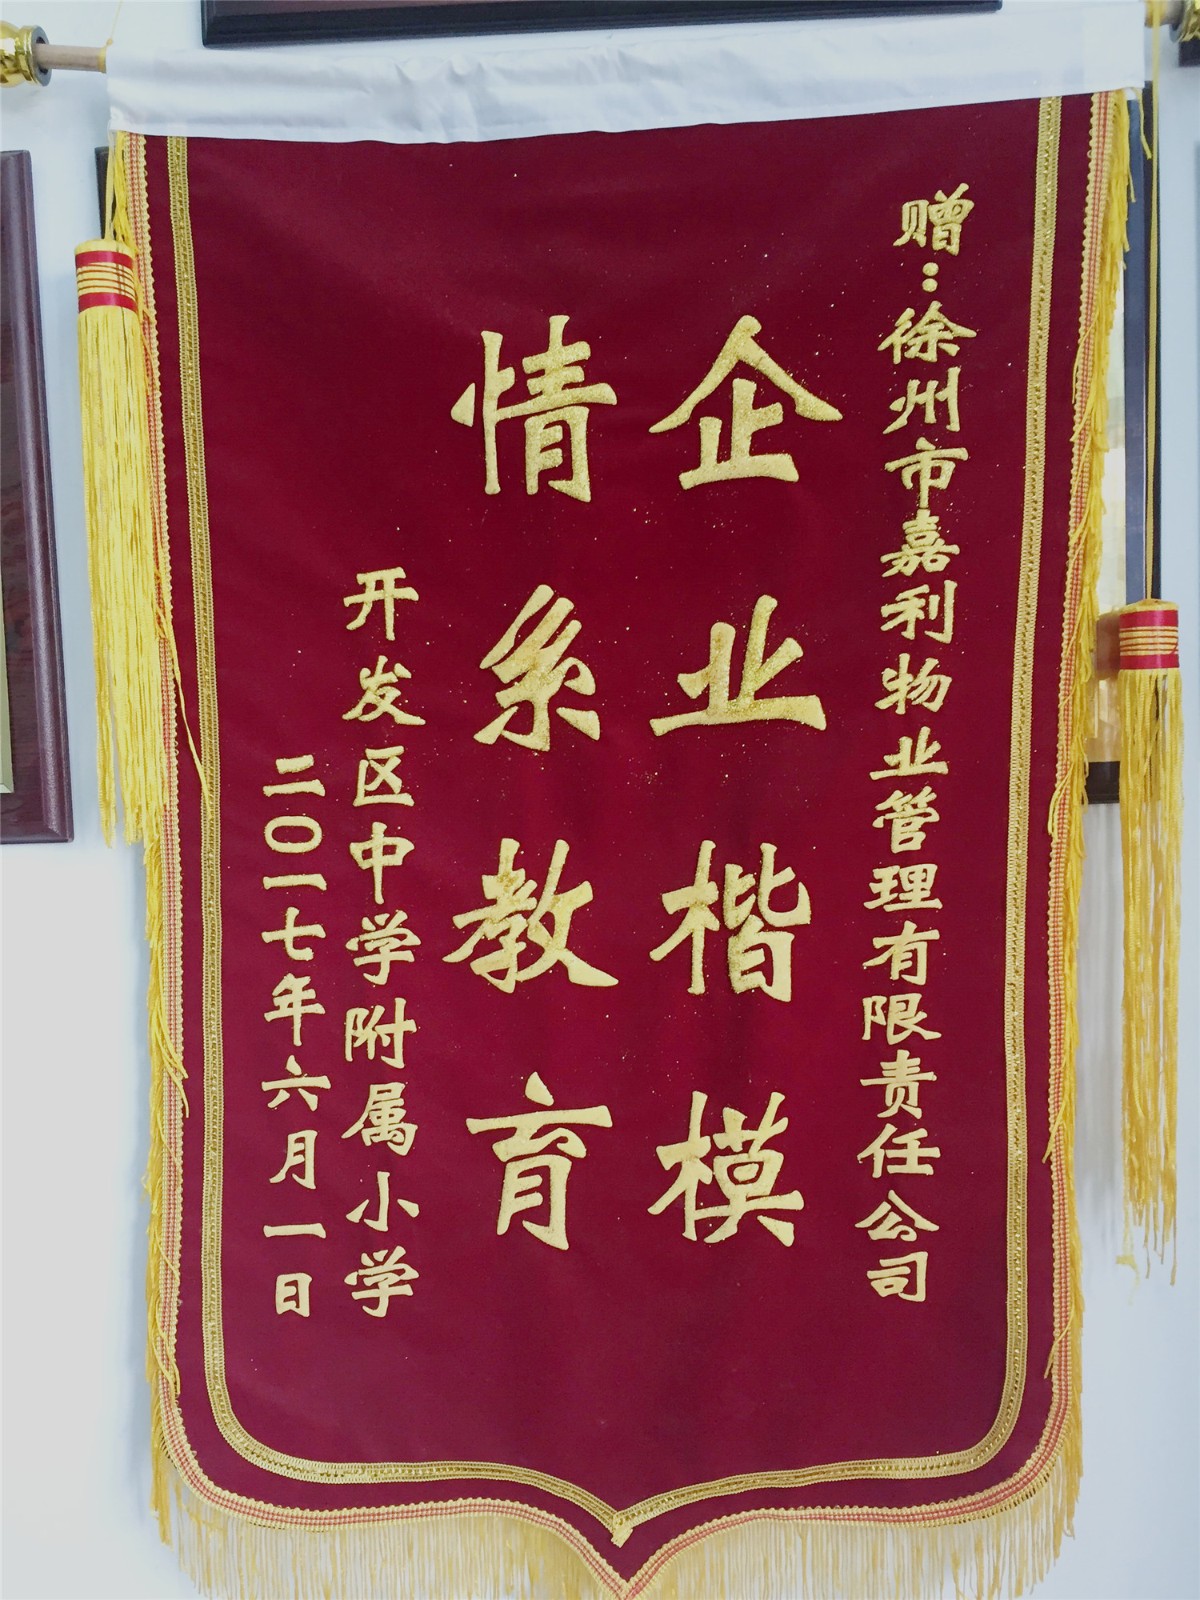 赠：徐州市嘉利物业管理有限责任公司
企业楷模
情系教育
开发区中学附属小学
二〇一七年六月一日